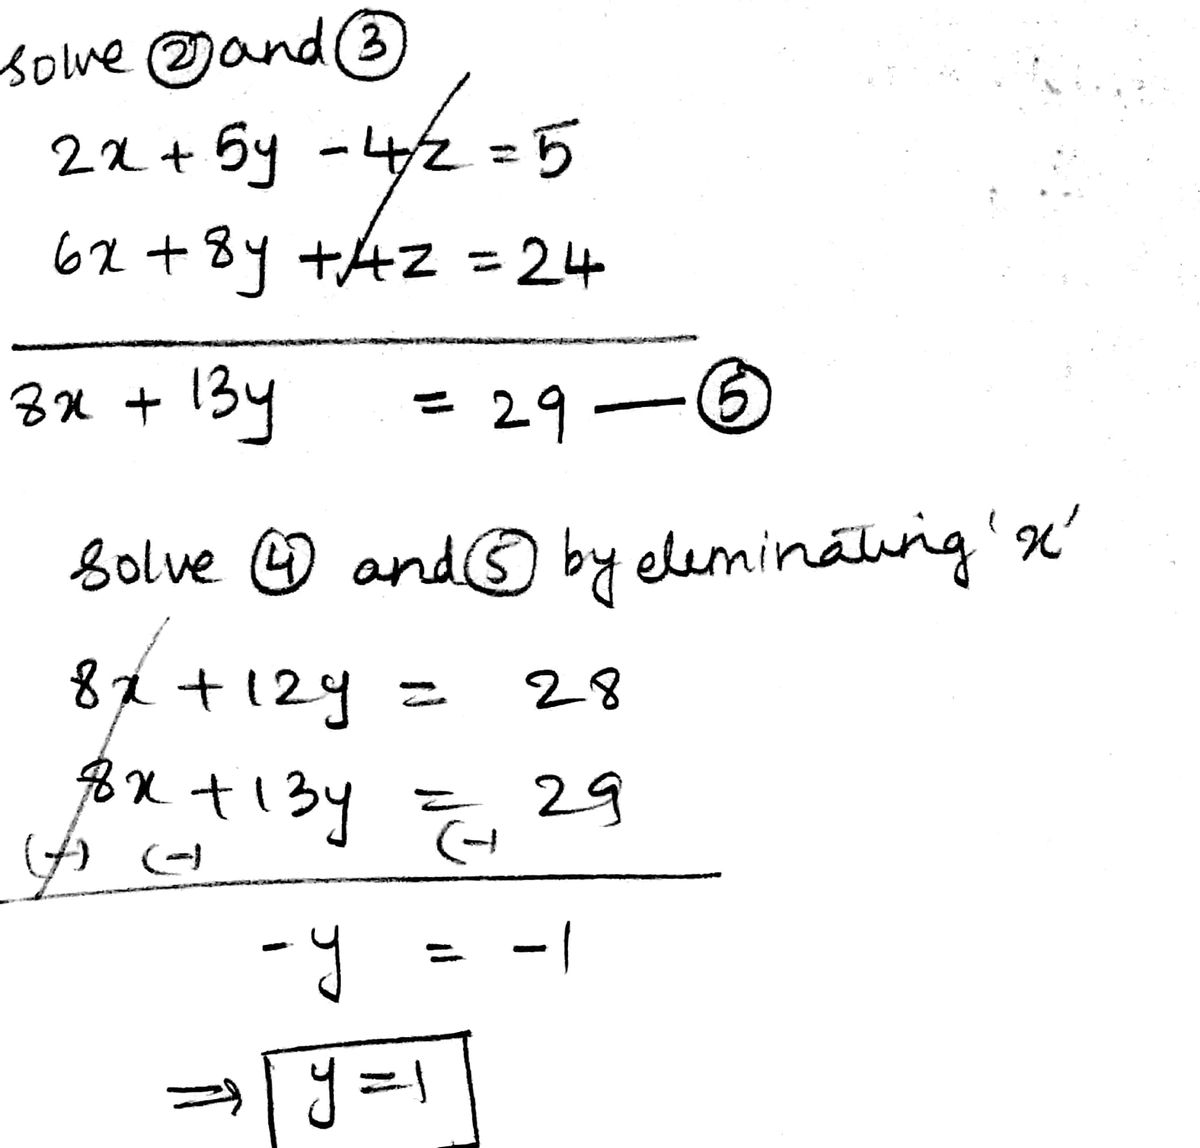 solve ② and ③
2x + 5y - 4z = 5
6x + 8y + 4z = 24
8x + 13y = 29 — ⑤
Solve ④ and ⑤ by eleminating 'x'
8x + 12y = 28
8x + 13y = 29
(-) (-) (-)
-y = -1
⇒ y = 1